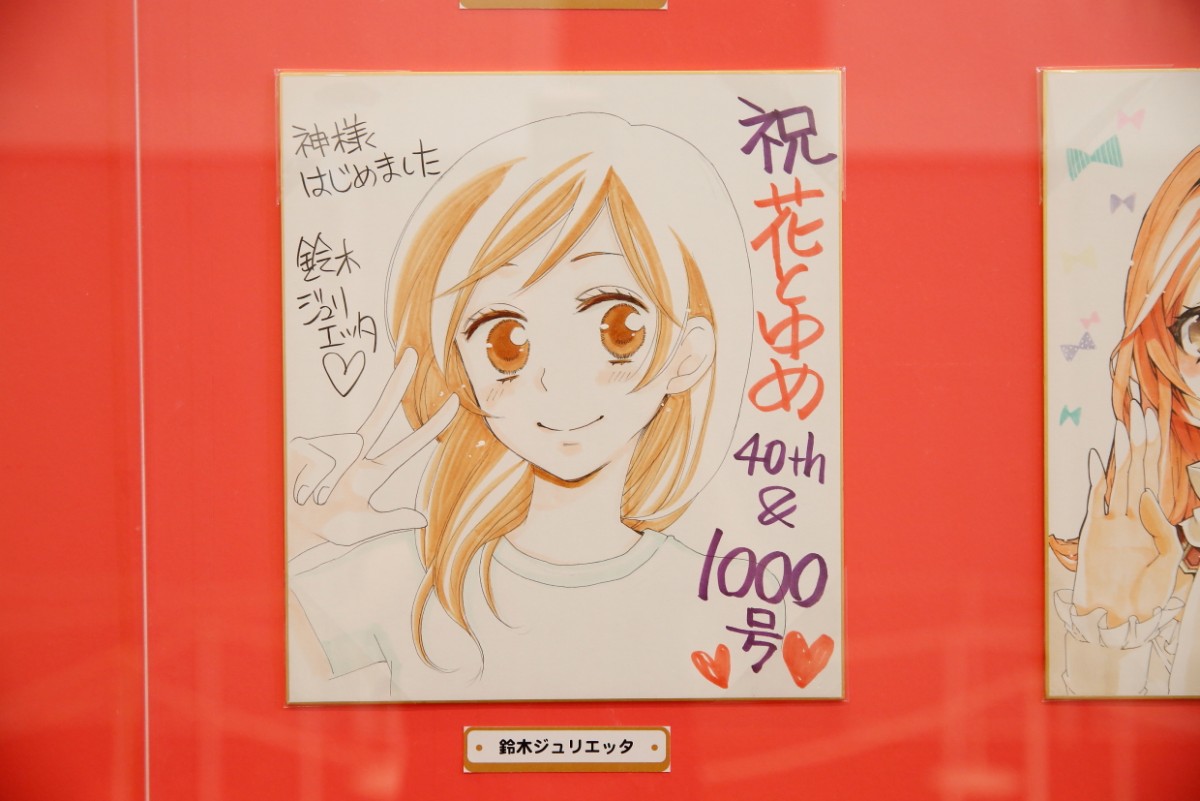 神様
はじめました
鈴木
ジュリ
エッタ
祝
花とゆめ
40th
&
1000
号
鈴木ジュリエッタ